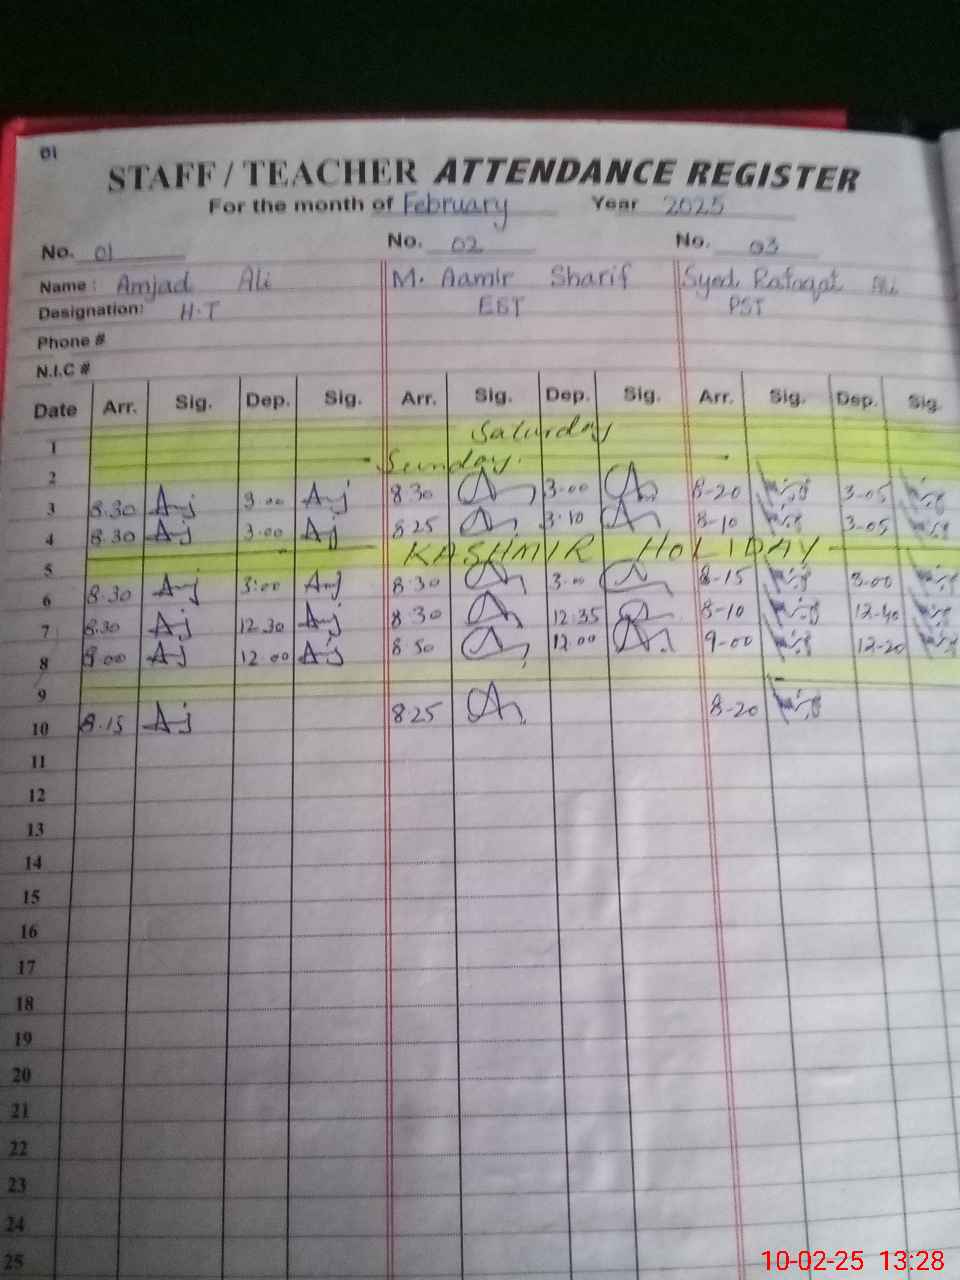 01
STAFF / TEACHER ATTENDANCE REGISTER
For the month of February Year 2025
No. 01 No. 02 No. 03
Name : Amjad Ali M. Aamir Sharif Syed Rafaqat Ali
Designation: H.T EST PST
Phone #
N.I.C #
Date Arr. Sig. Dep. Sig. Arr. Sig. Dep. Sig. Arr. Sig. Dep. Sig.
1 Saturday
2 Sunday.
3 8.30 Aj 3.00 Aj 8 30 3-00 8-20 3-05
4 8.30 Aj 3.00 Aj 8 25 3.10 8-10 3-05
5 KASHMIR HOLIDAY
6 8.30 Aj 3:00 Aj 8.30 3.00 8-15 3-00
7 8.30 Aj 12.30 Aj 8 30 12.35 8-10 12-40
8 9.00 Aj 12.00 Aj 8 50 12.00 9-00 12-20
9
10 8.15 Aj 8 25 8-20
11
12
13
14
15
16
17
18
19
20
21
22
23
24
25
10-02-25 13:28